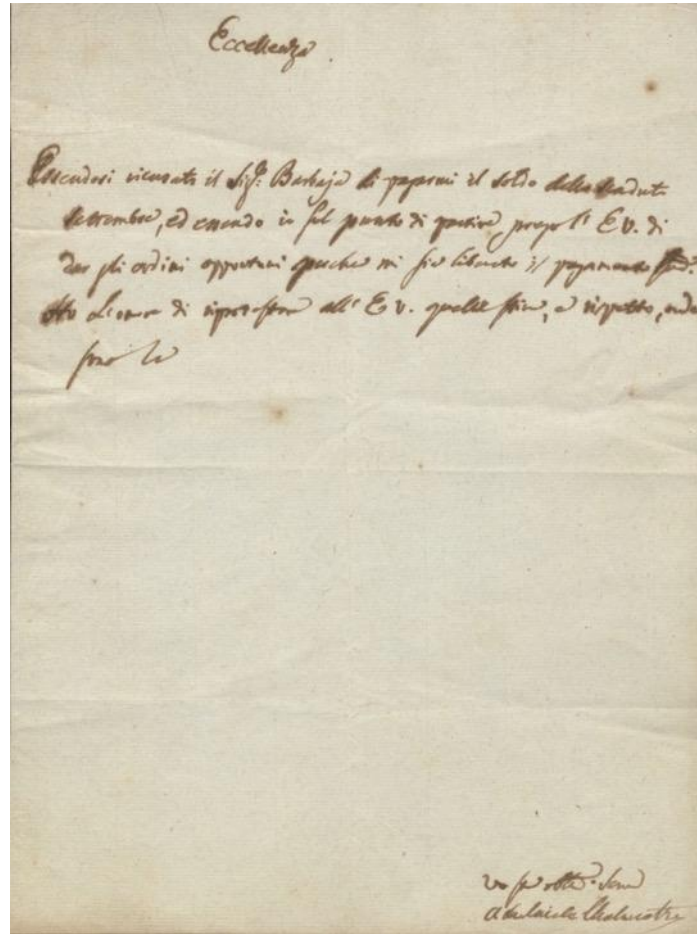 Eccellenza
Essendosi ricusato il Sig.r Barbaja di pagarmi il soldo dello scaduto
settembre, ed essendo io sul punto di partire, prego l'E.V. di
dar gli ordini opportuni perche mi sia liberato il pagamento
Ho l'onore di riprotestare all'E.V. quella stima, e rispetto, onde
sono la
Adelaide